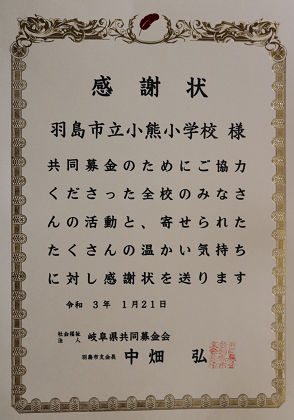 感謝状
羽島市立小熊小学校 様
共同募金のためにご協力
くださった全校のみなさ
んの活動と、寄せられた
たくさんの温かい気持ち
に対し感謝状を送ります
令和 3年 1月21日
社会福祉法人 岐阜県共同募金会
羽島市支会長 中畑 弘